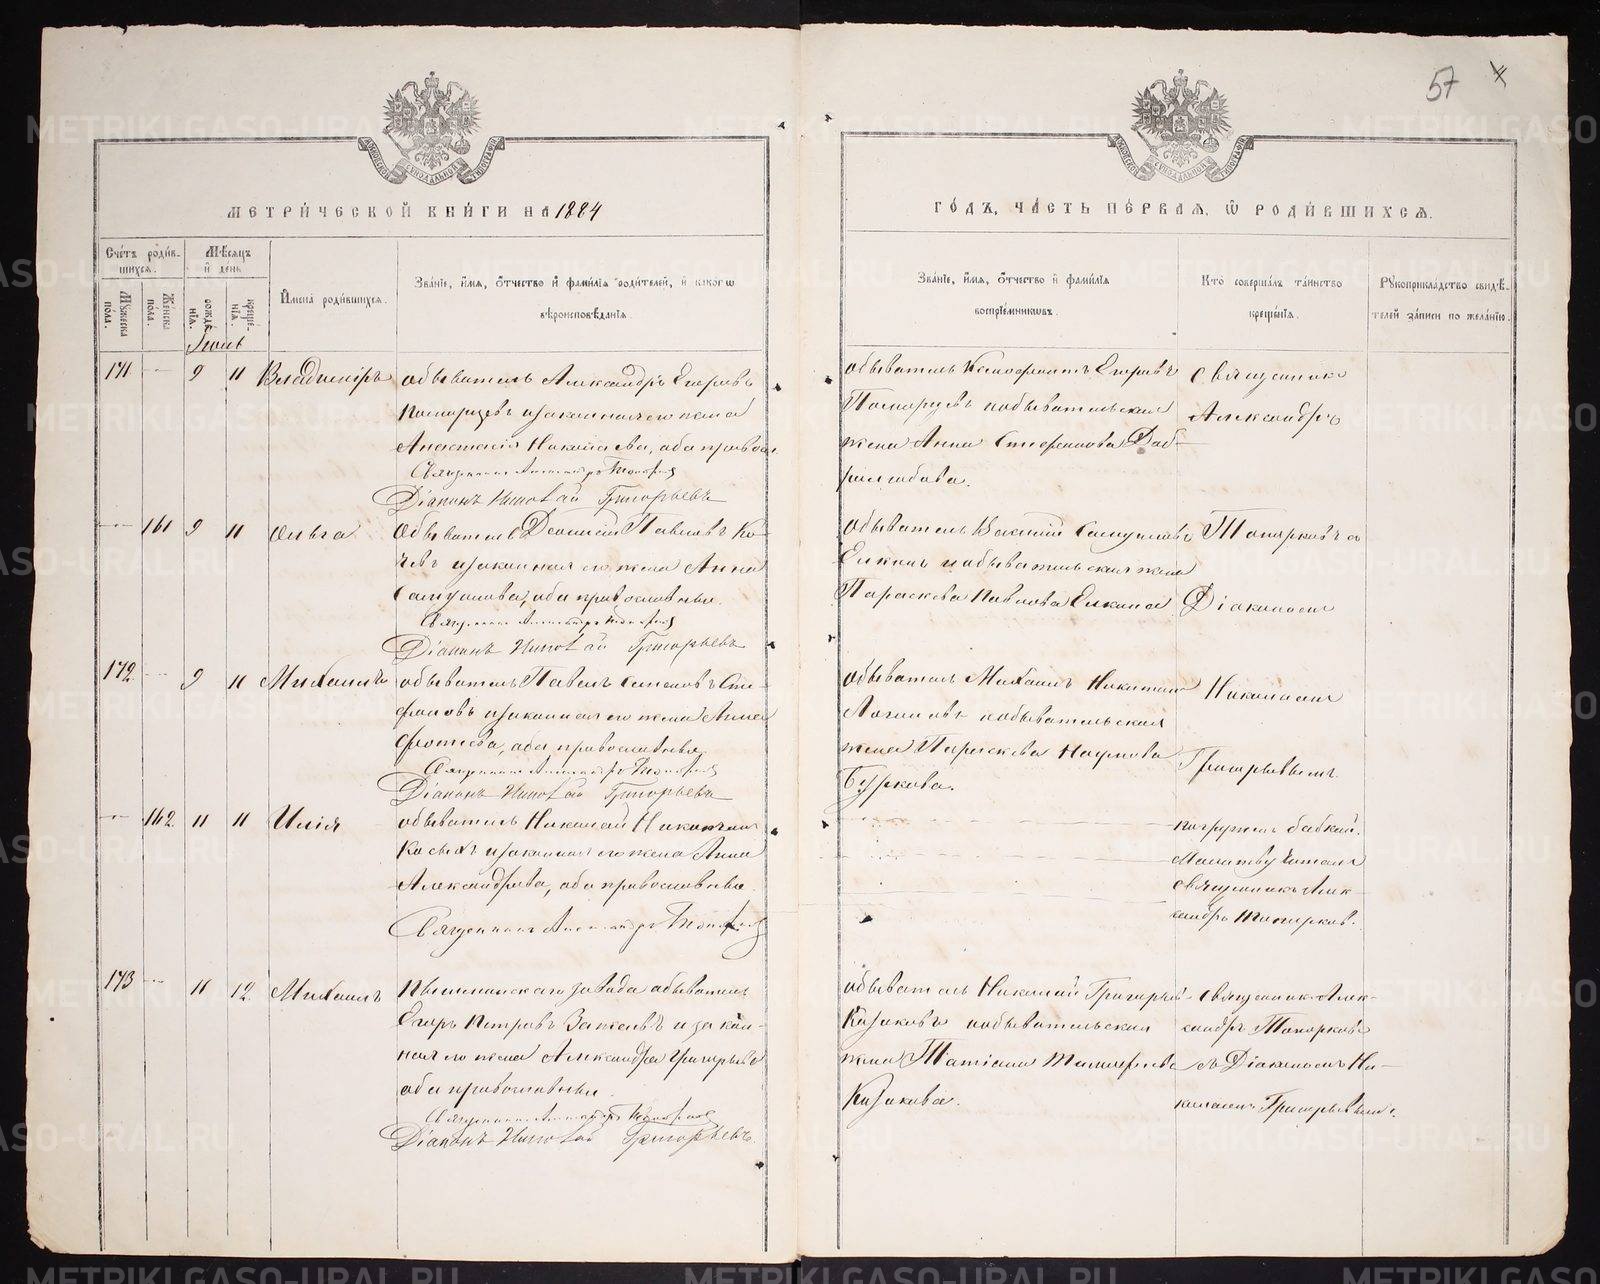 57
МЕТРИ́ЧЕСКОЙ КНИ́ГИ НА 1884
ГО́ДЪ, ЧА́СТЬ ПЕ́РВАЯ, Ѡ РОДИ́ВШИХСЯ.
Сче́тъ роди́в-
шихся.
Мѣ́сяцъ
и҆ день
Му́жеска по́ла.
Же́нска по́ла.
рожде́нїя.
креще́нїя.
И҆мена̀ роди́вшихся.
Зва́нїе, и҆́мя, ѻ҆́тчество и҆ фами́лїя роди́телей, и҆ како́гѡ
вѣроисповѣ́данїя.
Зва́нїе, и҆́мя, ѻ҆́тчество и҆ фами́лїя
воспрїе́мниковъ.
Кто̀ соверша́лъ та́инство
креще́нїя.
Рꙋкоприкла́дство свидѣ́-
телей за́писи по жела́нїю.
Іюль
171 9 11 Владиміръ
обыватель Александръ Егоровъ
и законная его жена
Анастасія Николаева, оба правосл.
Священникъ Александръ Топорковъ
Діаконъ Николай Григорьевъ
обыватель Егоровъ
и обывательская
жена Анна Стефанова
Священникъ
Александръ
161 9 11 Ольга
Обыватель Павловъ Ко-
и законная его жена Анна
оба православные.
Священникъ Александръ Топорковъ
Діаконъ Николай Григорьевъ
обыватель Василій
и обывательская жена
Параскева Павлова
Топорковъ съ
Діакономъ
172 9 11 Михаилъ
обыватель Павелъ
и законная его жена Анна
Фотиева, оба православные
Священникъ Александръ Топорковъ
Діаконъ Николай Григорьевъ
обыватель Михаилъ Никитинъ
Логиновъ и обывательская
жена Параскева Наумова
Буркова.
Николаемъ
Григорьевымъ
162 11 11 Илія
обыватель Николай
Косыхъ и законная его жена Анна
Александрова, оба православные.
Священникъ Александръ Топорковъ
погружен бабкой.
Молитву читалъ
священникъ Алек-
сандръ Топорковъ.
173 11 12 Михаилъ
Пышминскаго завода обыватель
Егоръ Петровъ и закон-
ная его жена Александра Григорьева
оба православные.
Священникъ Александръ Топорковъ
Діаконъ Николай Григорьевъ.
обыватель Николай Григорьев
Казаковъ и обывательская
жена Татіана Тимофеева
Казакова.
священникъ Алек-
сандръ Топорковъ
съ Діакономъ Ни-
колаемъ Григорьевымъ.
METRIKI.GASO-URAL.RU